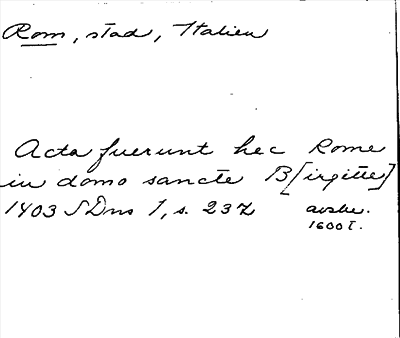 Rom, stad, Italien
Acta fuerunt hec Rome
in domo sancte B[irgitte]
1403 SDns 1, s. 232 avskr.
1600 t.